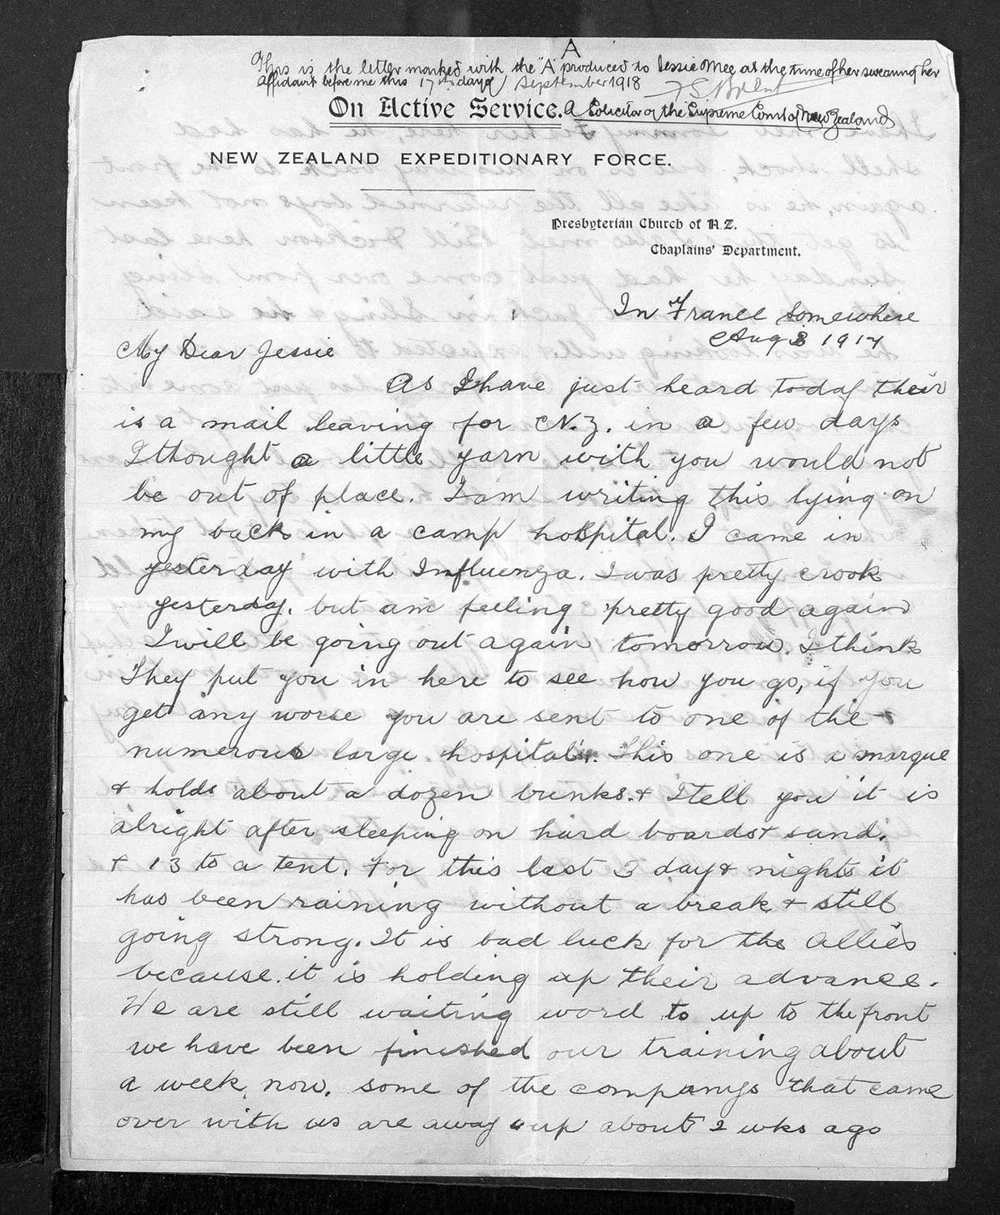 A
This is the letter marked with the "A" produced to Jessie Mee at the time of her swearing her
affidavit before me this 17th day of September 1918
On Active Service. A Solicitor of the Supreme Court of New Zealand
NEW ZEALAND EXPEDITIONARY FORCE.
Presbyterian Church of N.Z.
Chaplains' Department.
In France Somewhere
Aug 3 1917
My Dear Jessie
As I have just heard today their
is a mail leaving for N.Z. in a few days
I thought a little yarn with you would not
be out of place. I am writing this lying on
my back in a camp hospital. I came in
yesterday with Influenza. I was pretty crook
yesterday. but am feeling pretty good again
I will be going out again tomorrow. I think
They put you in here to see how you go, if you
get any worse you are sent to one of the
numerous large hospitals. This one is a marque
& holds about a dozen bunks. & I tell you it is
alright after sleeping on hard boards & sand.
& 13 to a tent. For this last 3 day & nights it
has been raining without a break & still
going strong. It is bad luck for the Allies
because it is holding up their advance.
We are still waiting word to up to the front
we have been finished our training about
a week now. some of the companys that came
over with us are away up about 2 wks ago